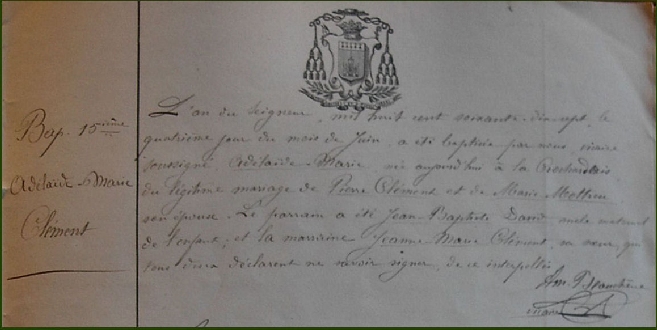 Bap. 15ième
Adélaide-Marie
Clément
L'an du Seigneur, mil huit cent soixante-dix-sept, le
quatrième jour du mois de Juin, a été baptisée par nous, vicaire
soussigné Adélaïde-Marie née aujourd'hui à la
du légitime mariage de Pierre Clément et de Marie
son épouse. Le parrain a été Jean-Baptiste David oncle maternel
de l'enfant; et la marraine Jeanne Marie Clément, sa sœur, qui
tous deux déclarent ne savoir signer, de ce interpellés